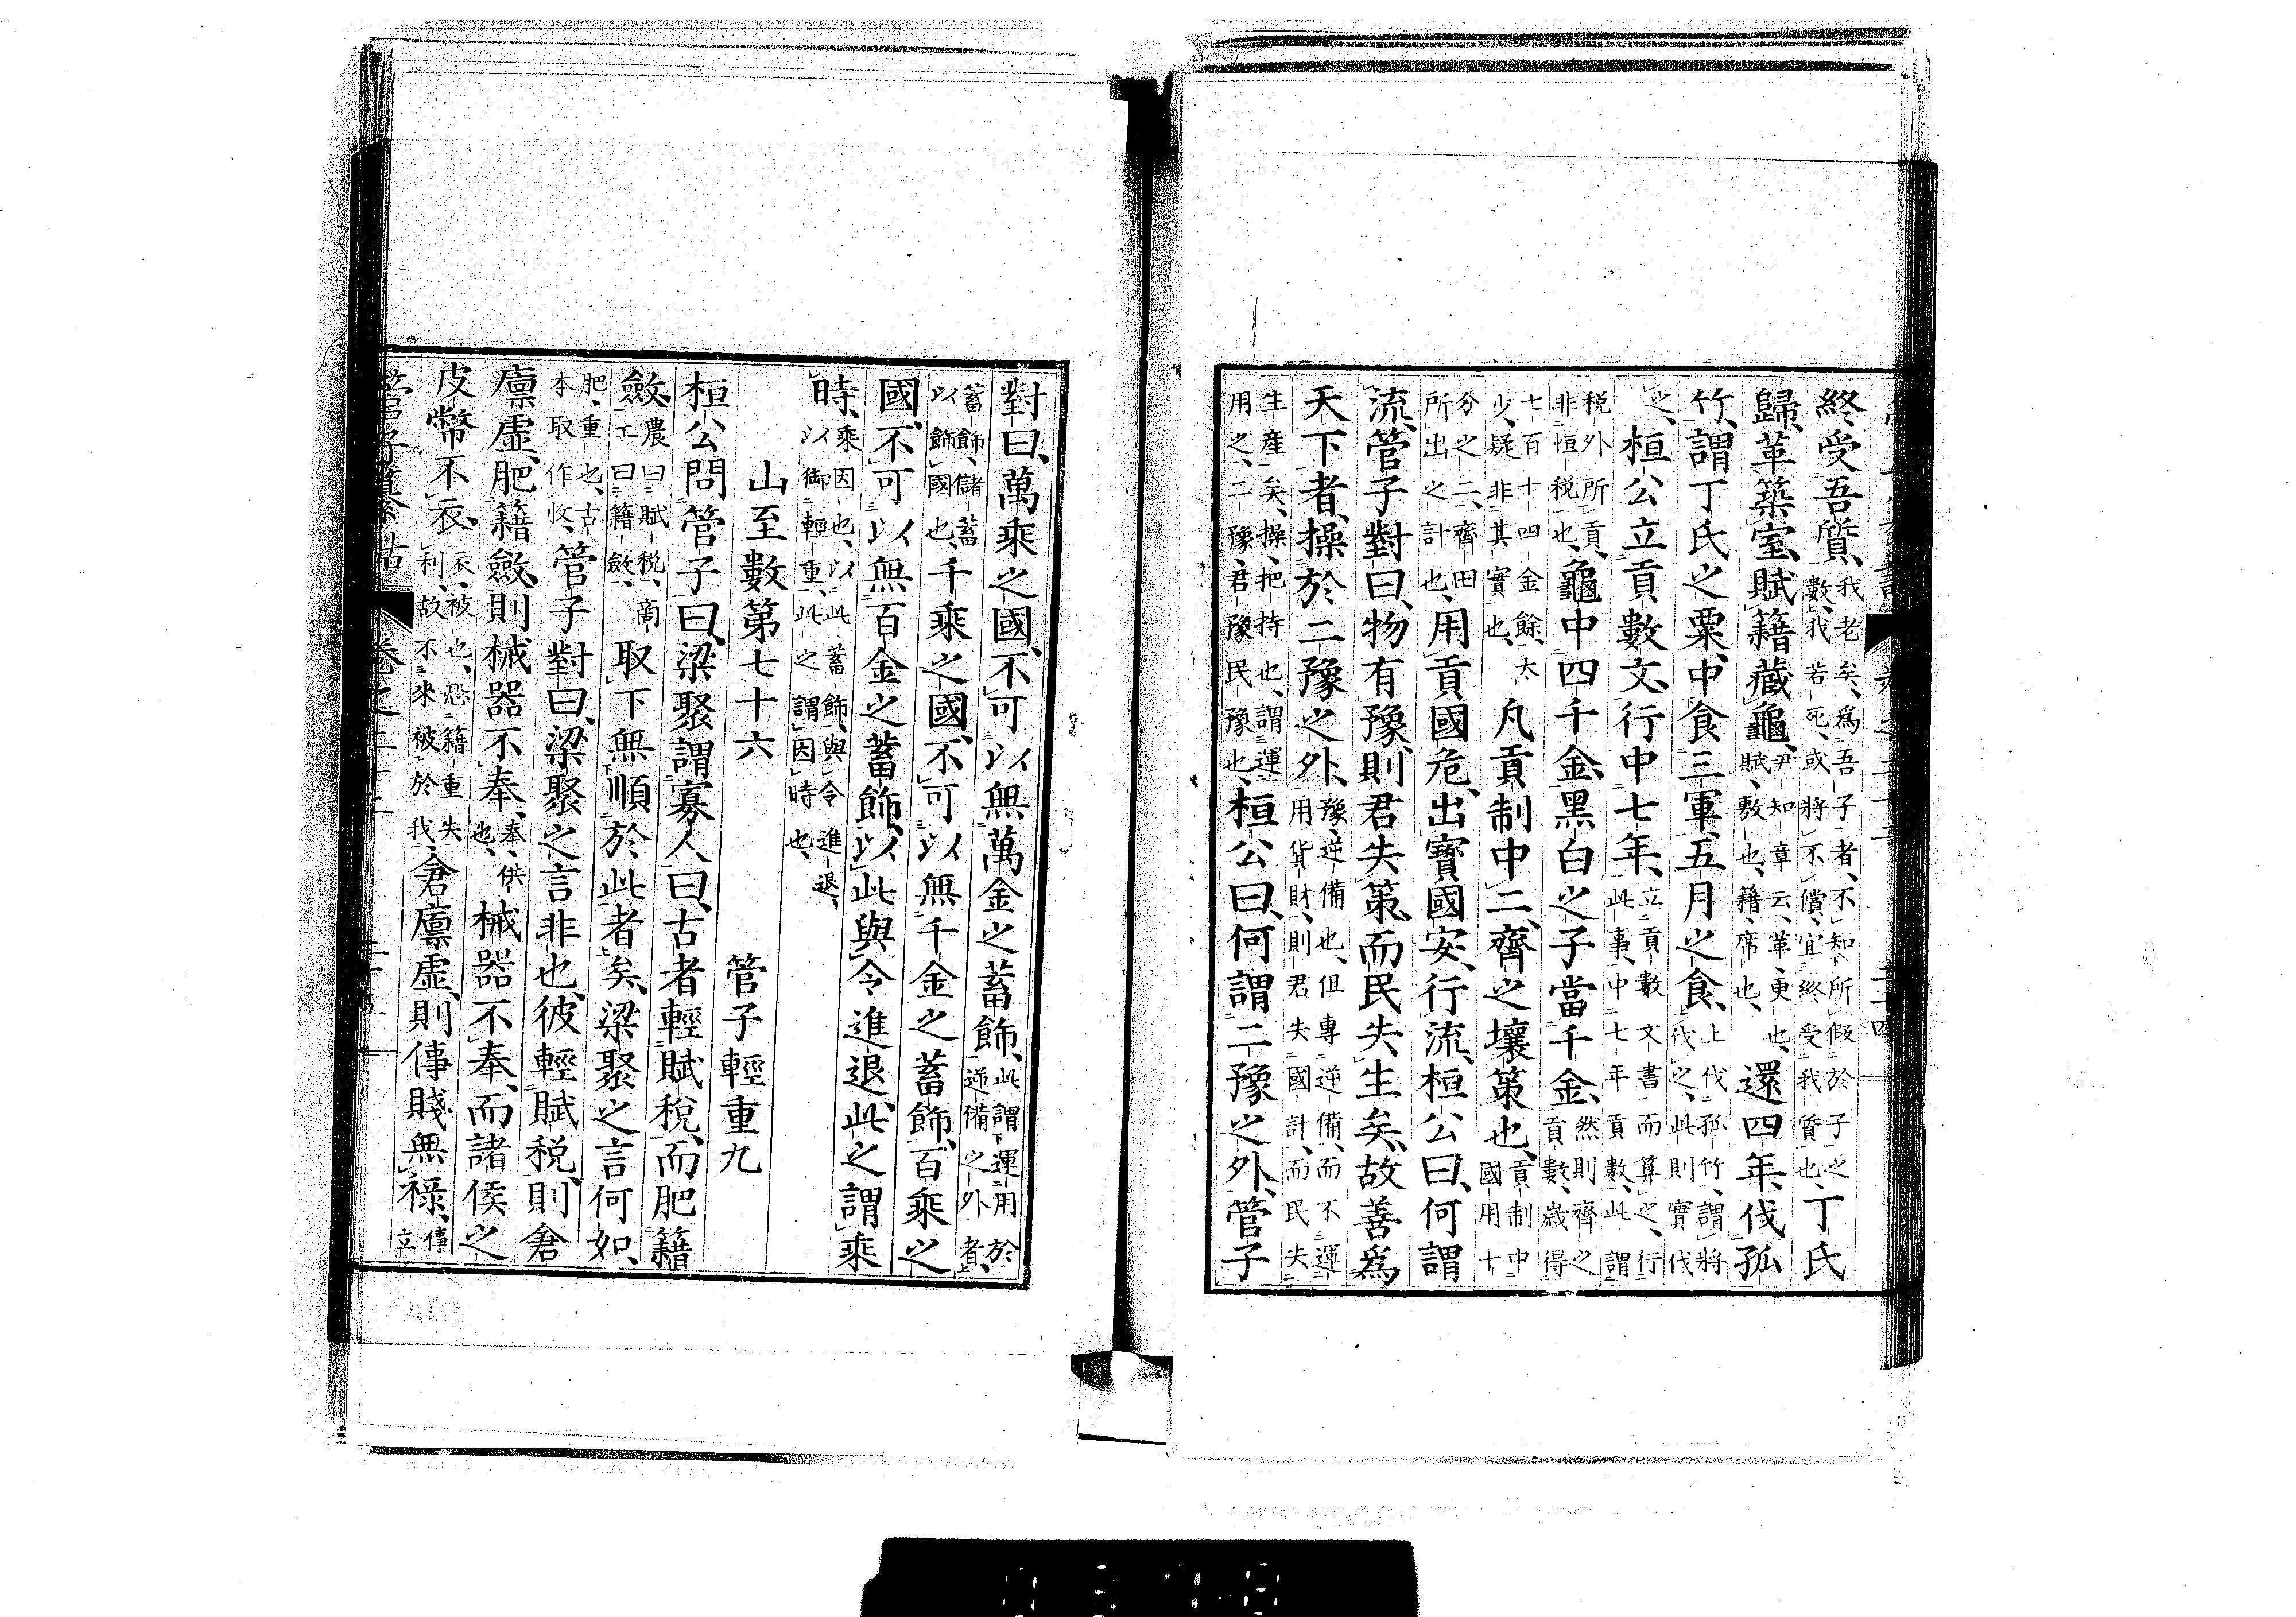 終受吾質、我老矣、爲吾子者、不知所假於子之數、我若死、或將不償、宜終受我質也、丁氏
歸、革築室、賦籍藏龜、尹知章云、革、更也、賦、敷也、籍、席也、還四年、伐孤
竹、謂丁氏之粟、中食三軍、五月之食、上伐孤竹、謂將伐之、此則實伐
之、桓公立貢數、文行中七年、立貢數文書而算之、行此事、中七年貢數、此謂
税外所貢、非恒税也、龜中四千金、黑白之子當千金、然則齊之貢數、歳得
七百十四金餘、太少、疑非其實也、凡貢制中二、齊之壤策也、貢制中國用十
分之二、齊田所出之計也、用貢國危、出寶國安、行流、桓公曰、何謂
流、管子對曰、物有豫、則君失策、而民失生矣、故善爲
天下者、操於二豫之外、豫、逆備也、但專逆備、而不運用貨財、則君失國計、而民失
生產矣、操、把持也、謂運用之、二豫、君豫民豫也、桓公曰、何謂二豫之外、管子
對曰、萬乘之國、不可以無萬金之蓄飾、此謂運用於逆備之外者、
蓄飾、儲蓄以飾國也、千乘之國、不可以無千金之蓄飾、百乘之
國、不可以無百金之蓄飾、以此與令進退、此之謂乘
時、乘因也、以此蓄飾、與令進退、以御輕重、此之謂因時也、
山至數第七十六　管子輕重九
桓公問管子曰、梁聚謂寡人曰、古者輕賦税、而肥籍
斂、農曰賦税、商工曰籍斂、取下無順於此者矣、梁聚之言何如、
肥、重也、古本取作收、管子對曰、梁聚之言非也、彼輕賦税、則倉
廩虛、肥籍斂、則械器不奉、奉、供也、械器不奉、而諸侯之
皮幣不衣、衣、被也、恐籍重失利、故不來被於我、倉廩虛、則倳賤無祿、倳立